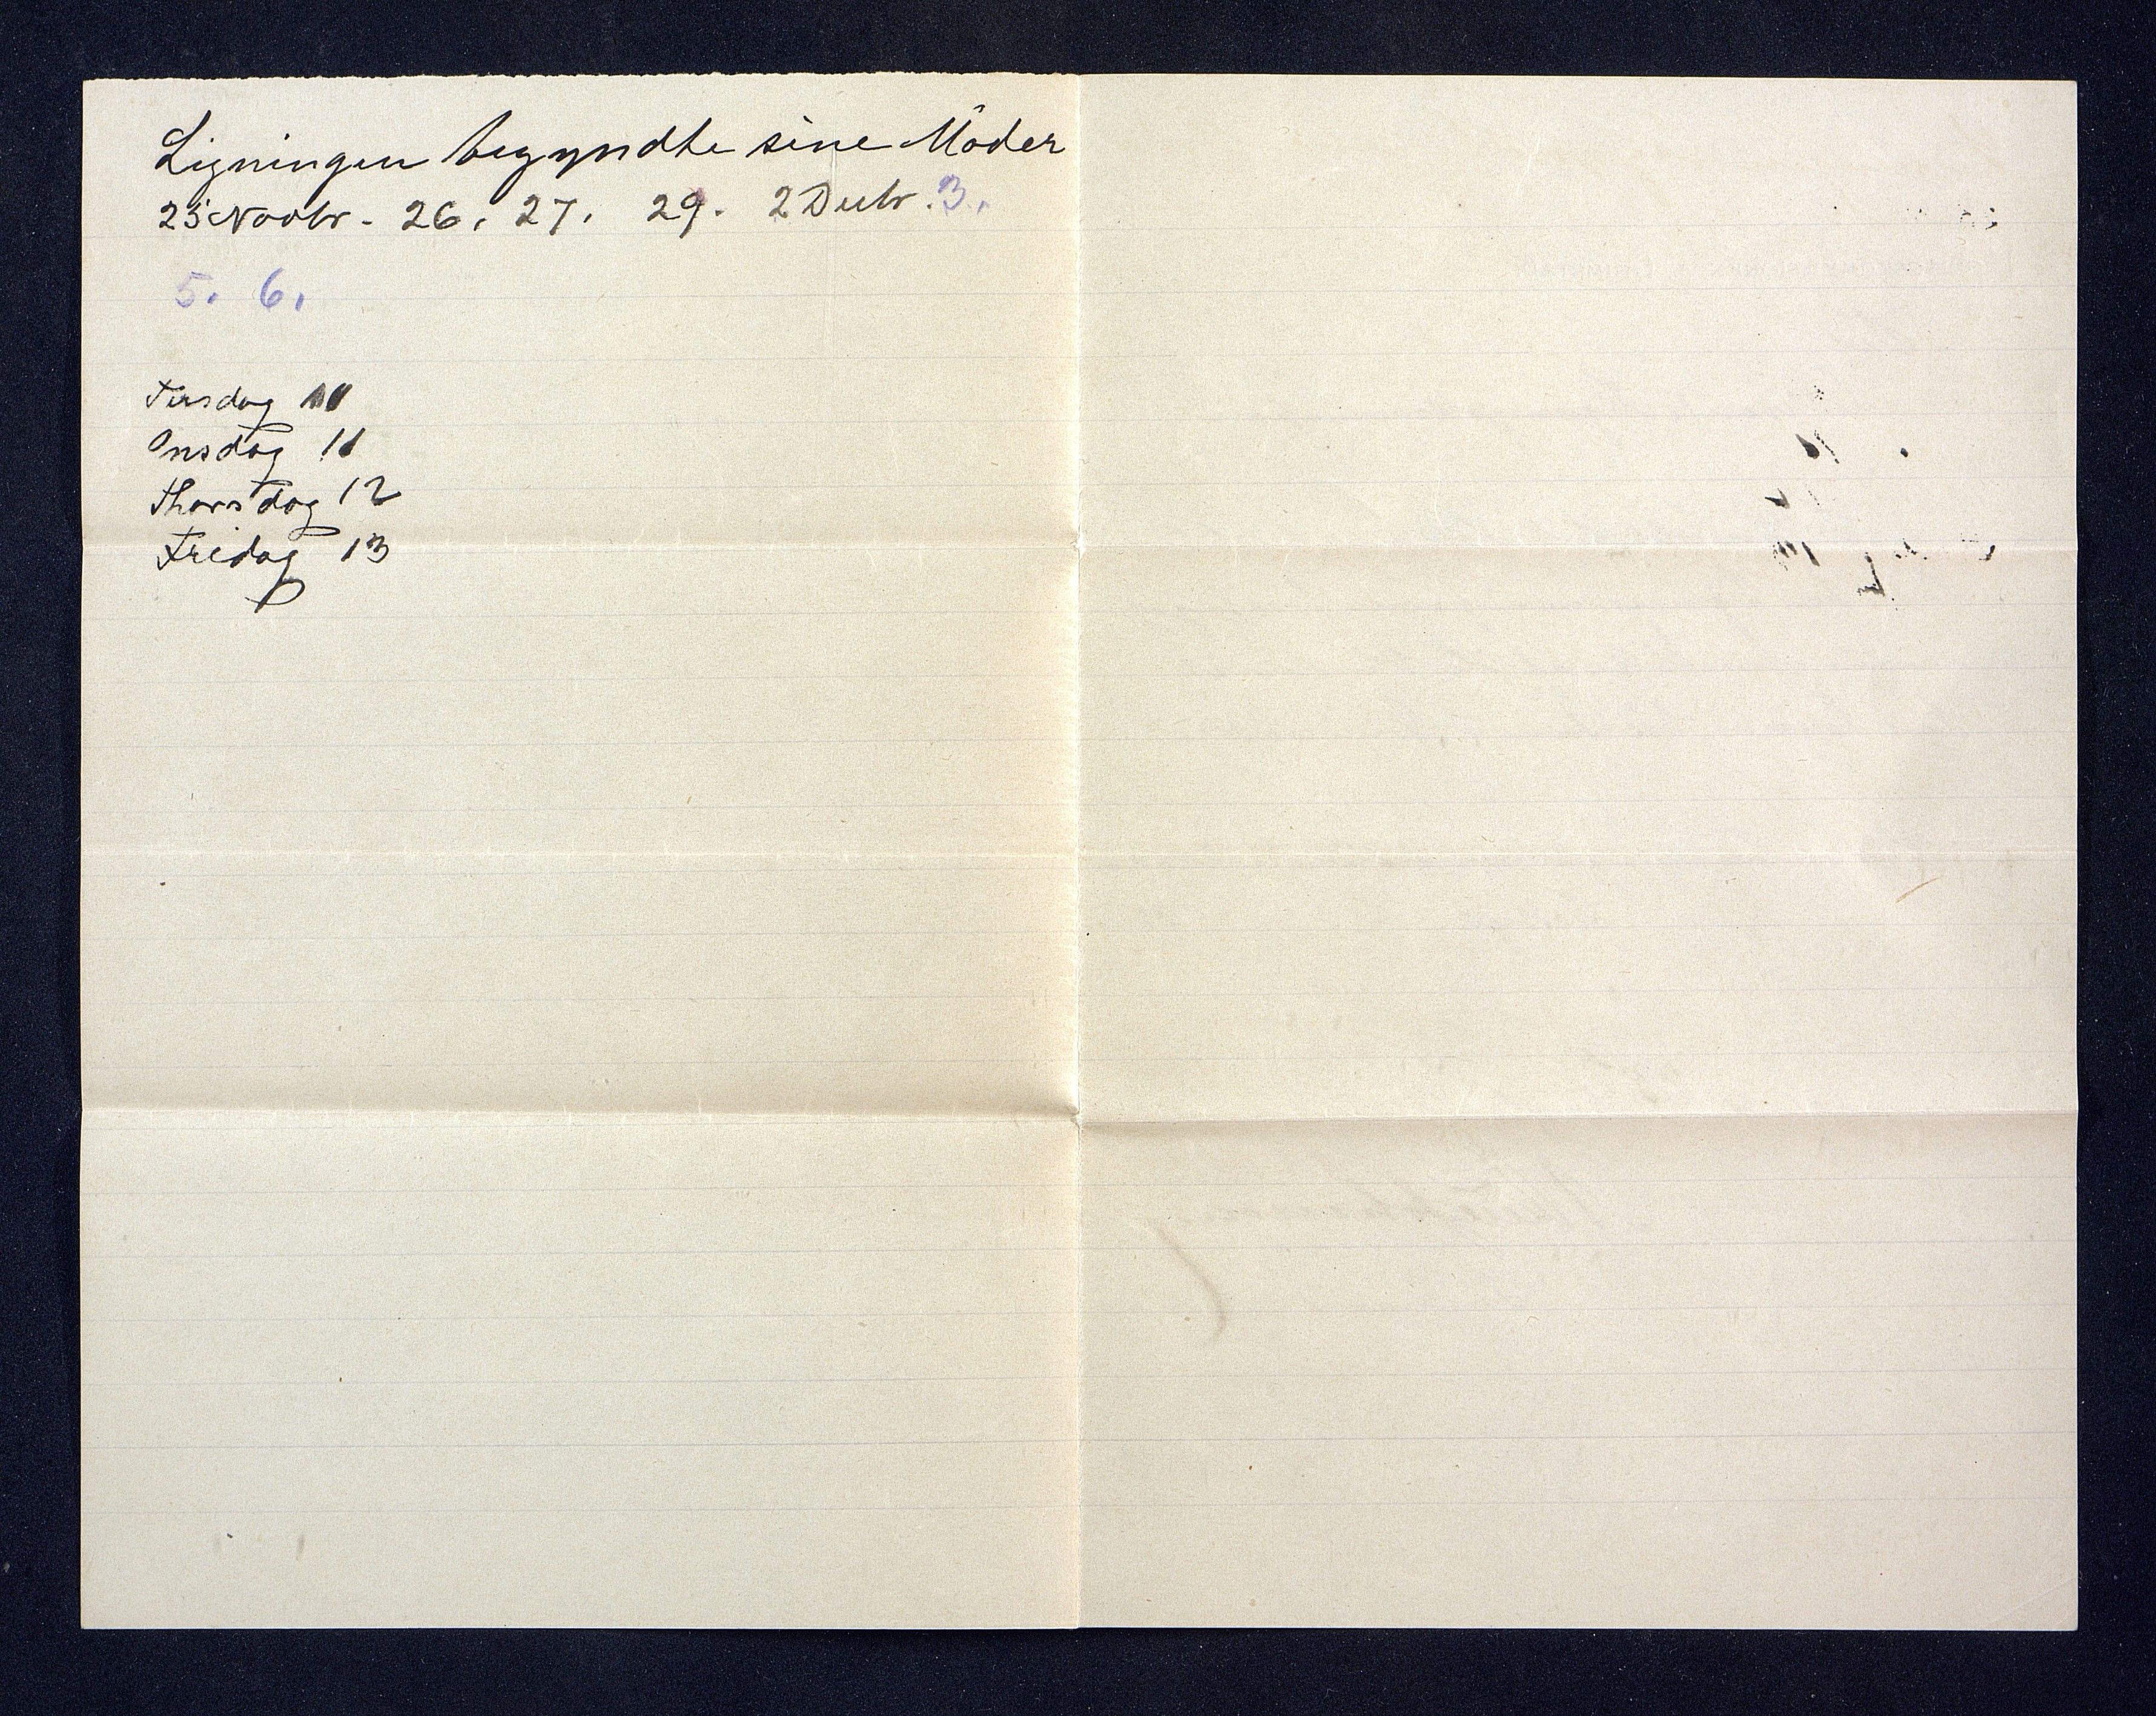 Ligningen begyndte sine Möder
25 Novbr. 26. 27. 29. 2 Decbr. 3.
5. 6.
Tirsdag 10
Onsdag 11
Thorsdag 12
Fredag 13